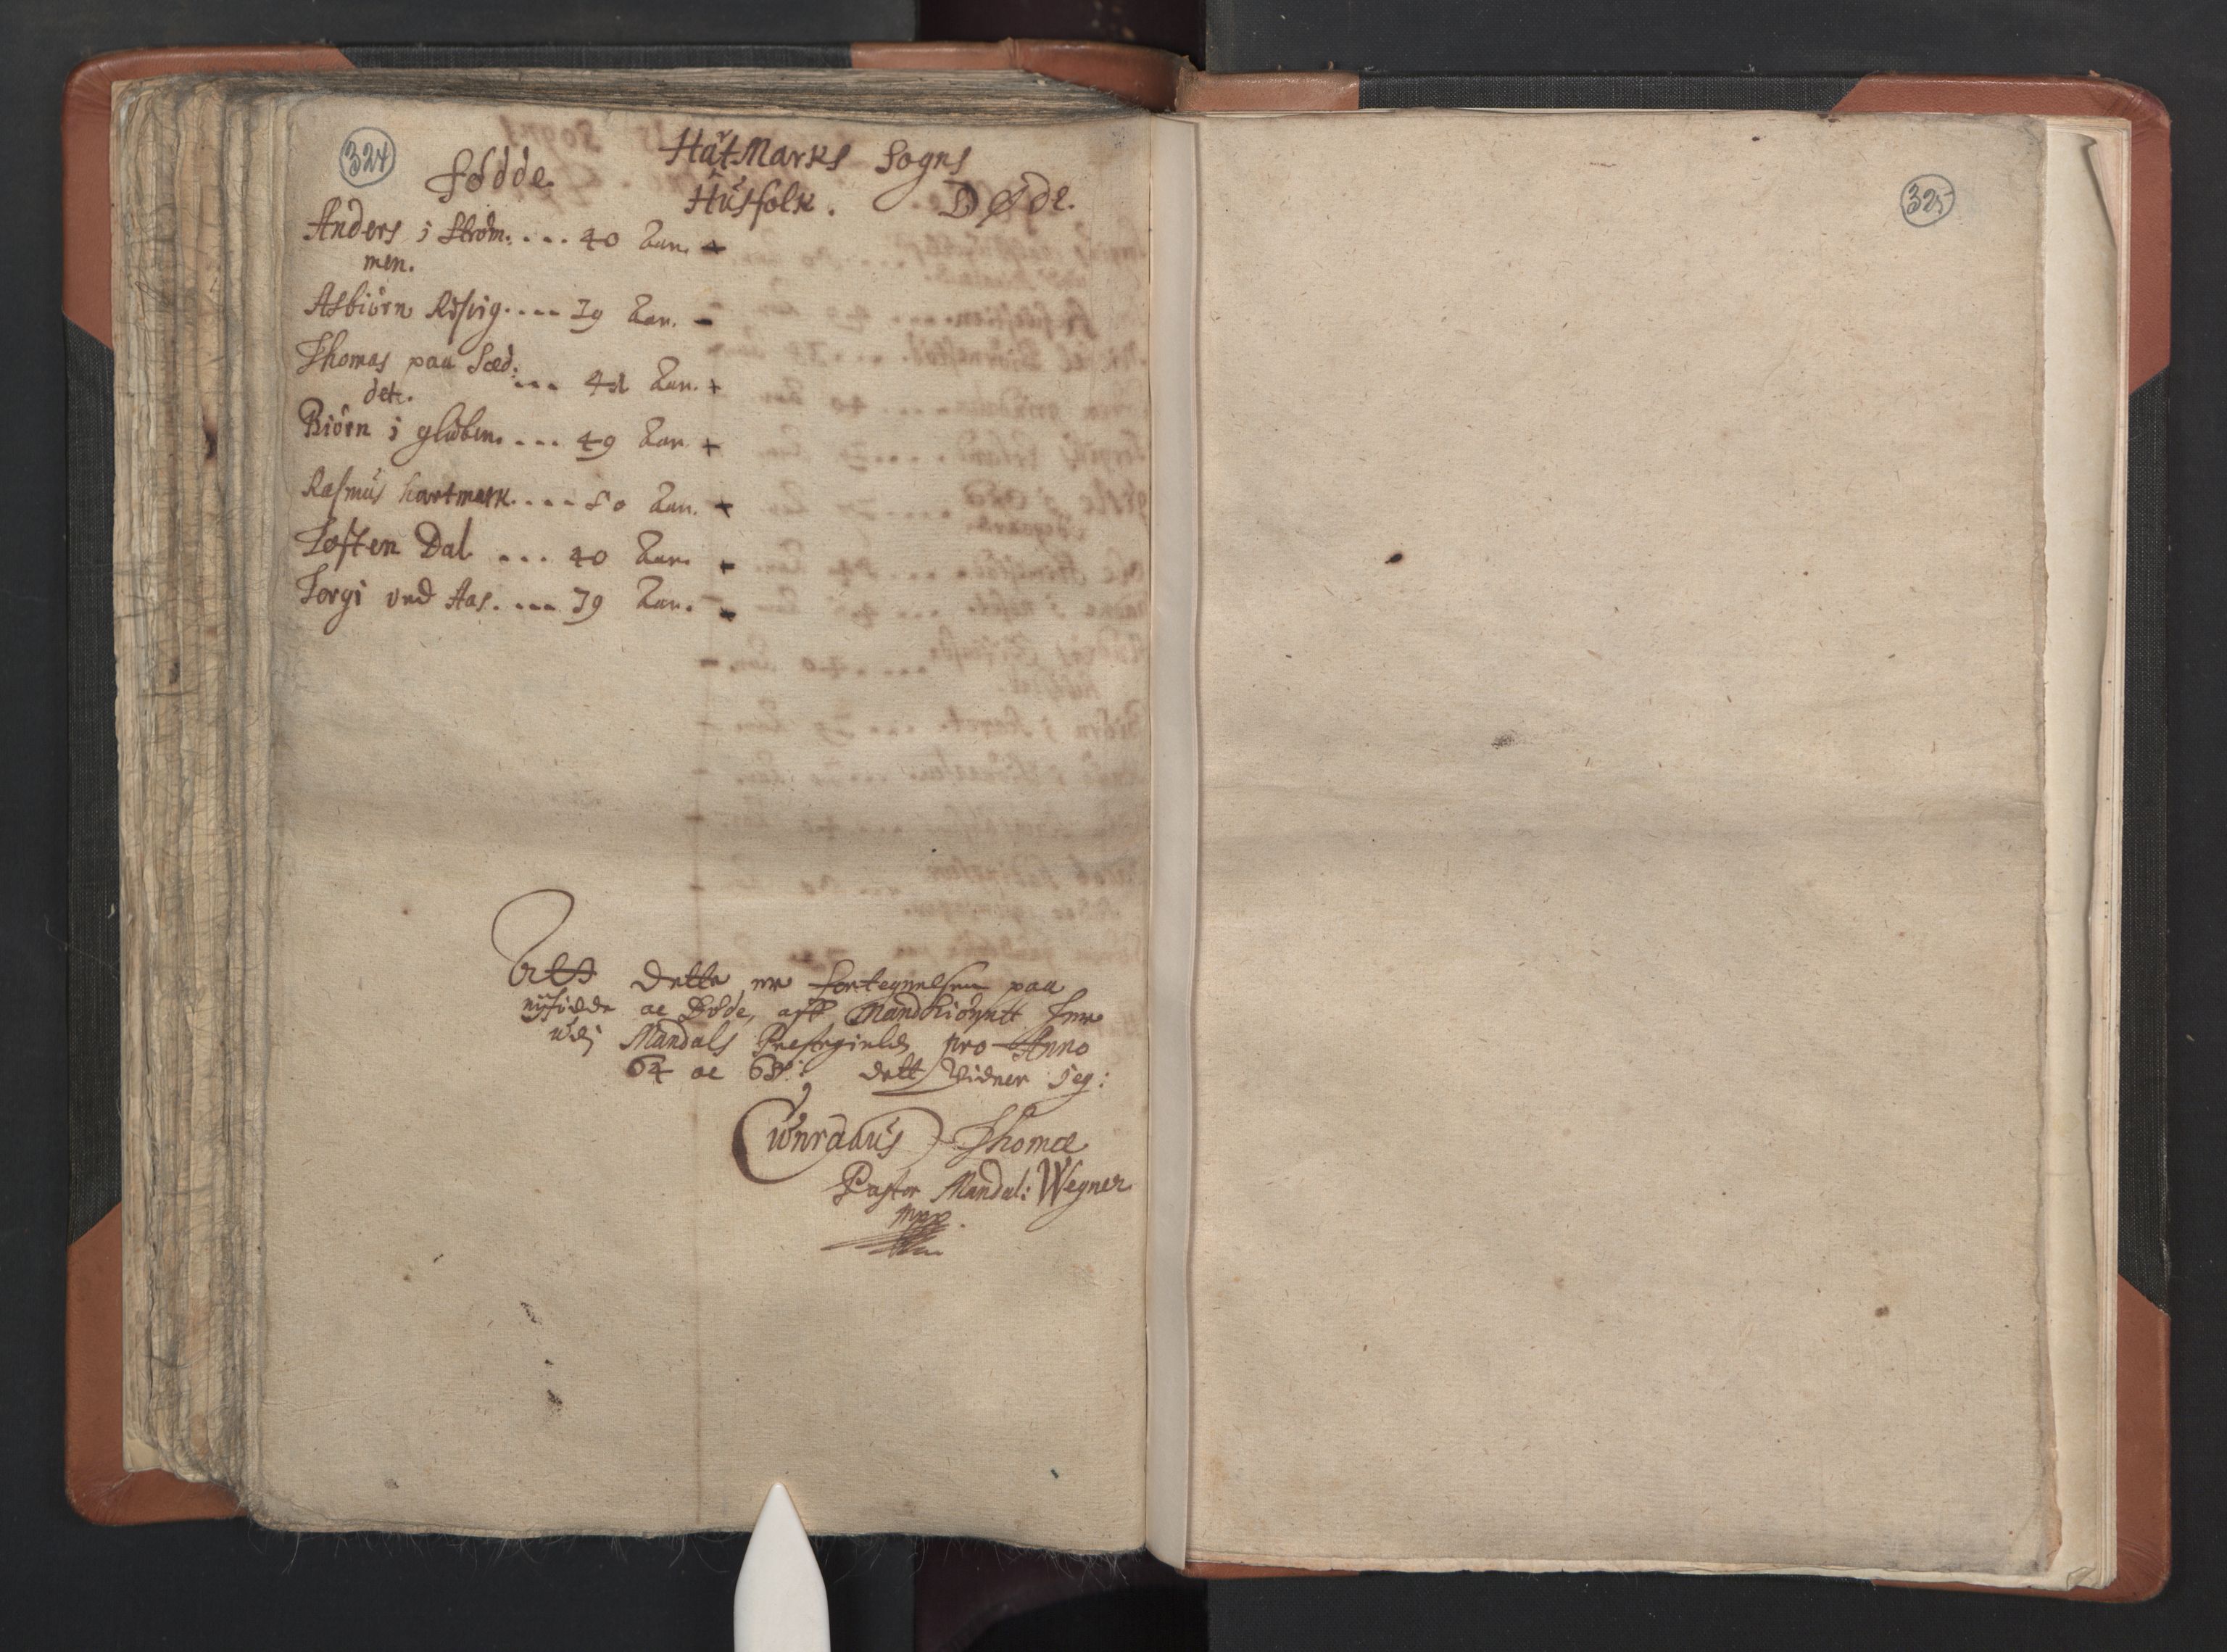 324
HatMarks Sogns
fødde Husfolk. Døde.
Anders i Strøm: ... 40 Aar. +
men.
Asbiørn Risvig .... 39 Aar. -
Thomas paa Sæd:
det. ... 41 Aar. +
Biørn i globen. ... 49 Aar +
Rasmus hartmark. ... 50 Aar. +
Tosten Dal ... 40 Aar. +
Torgi ved Aas. ... 39 Aar. -
Att dette er fortegnelsen paa
nyfødde oc Døde, aff Mandkiønnet her
udj Mandals Prestegield, pro Anno
64 oc 65: dett Vidner jeg:
Cunradus Thomæ
Pastor Mandal: Wegner
mpp.
325